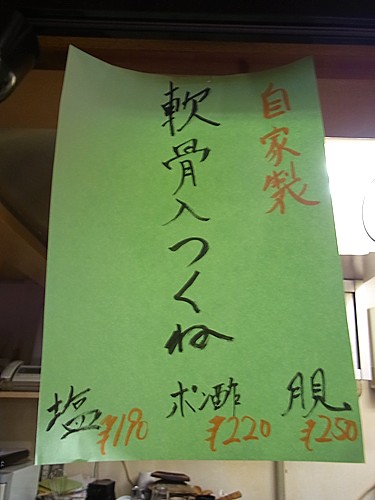 自家製
軟骨入つくね
塩 ¥190
ポン酢 ¥220
月見 ¥250